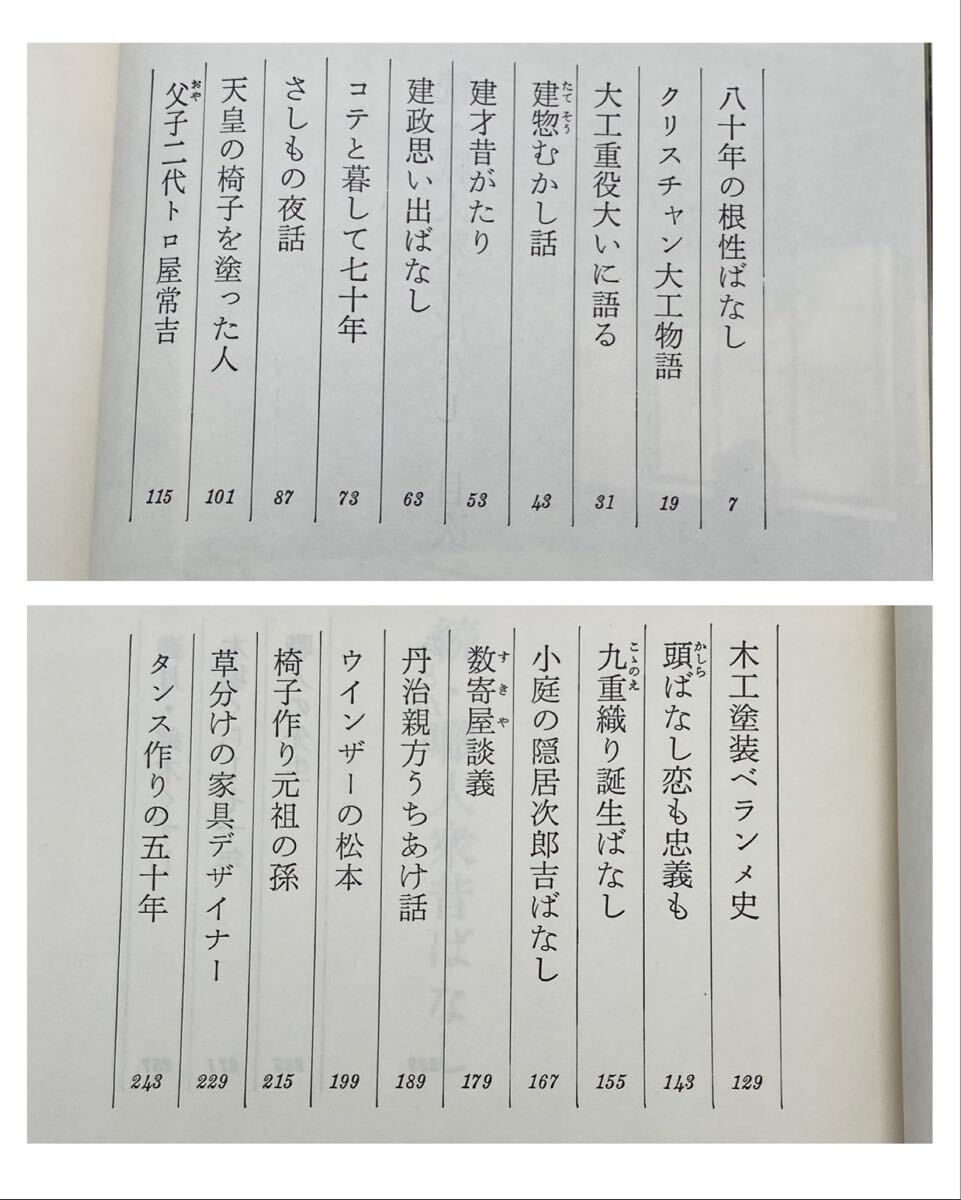 八十年の根性ばなし 7
クリスチャン大工物語 19
大工重役大いに語る 31
建惣むかし話 43
たて そう
建才昔がたり 53
建政思い出ばなし 63
コテと暮して七十年 73
さしもの夜話 87
天皇の椅子を塗った人 101
父子二代トロ屋常吉 115
おや
木工塗装ベランメ史 129
頭ばなし恋も忠義も 143
かしら
九重織り誕生ばなし 155
こゝのえ
小庭の隠居次郎吉ばなし 167
数寄屋談義 179
すきや
丹治親方うちあけ話 189
ウインザーの松本 199
椅子作り元祖の孫 215
草分けの家具デザイナー 229
タンス作りの五十年 243